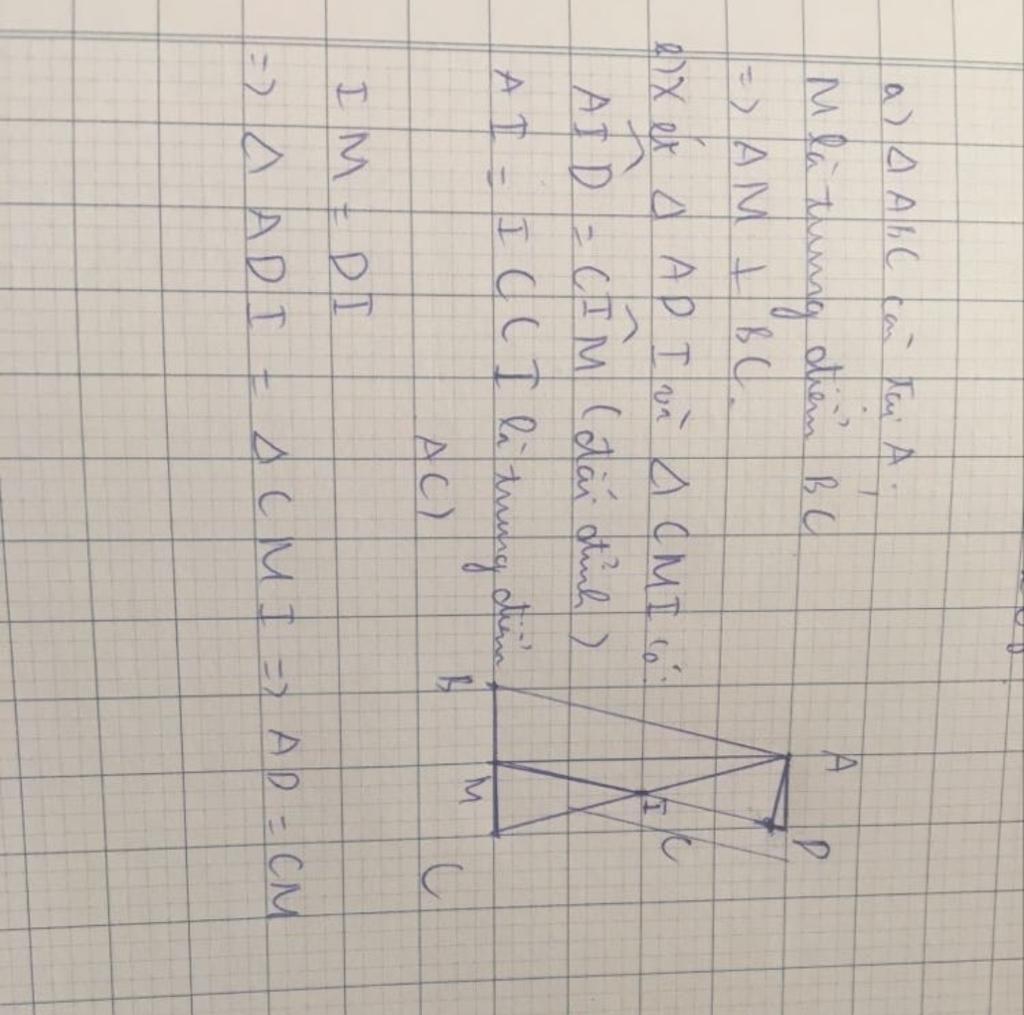 a) Δ ABC cân tại A.
M là trung điểm BC
=> AM ⊥ BC.
b) Xét Δ ADI và Δ CMI có:
AÎD = CÎM (đối đỉnh)
AI = IC (I là trung điểm
AC)
IM = DI
=> Δ ADI = Δ CMI => AD = CM
A
D
I
C
B
M
C